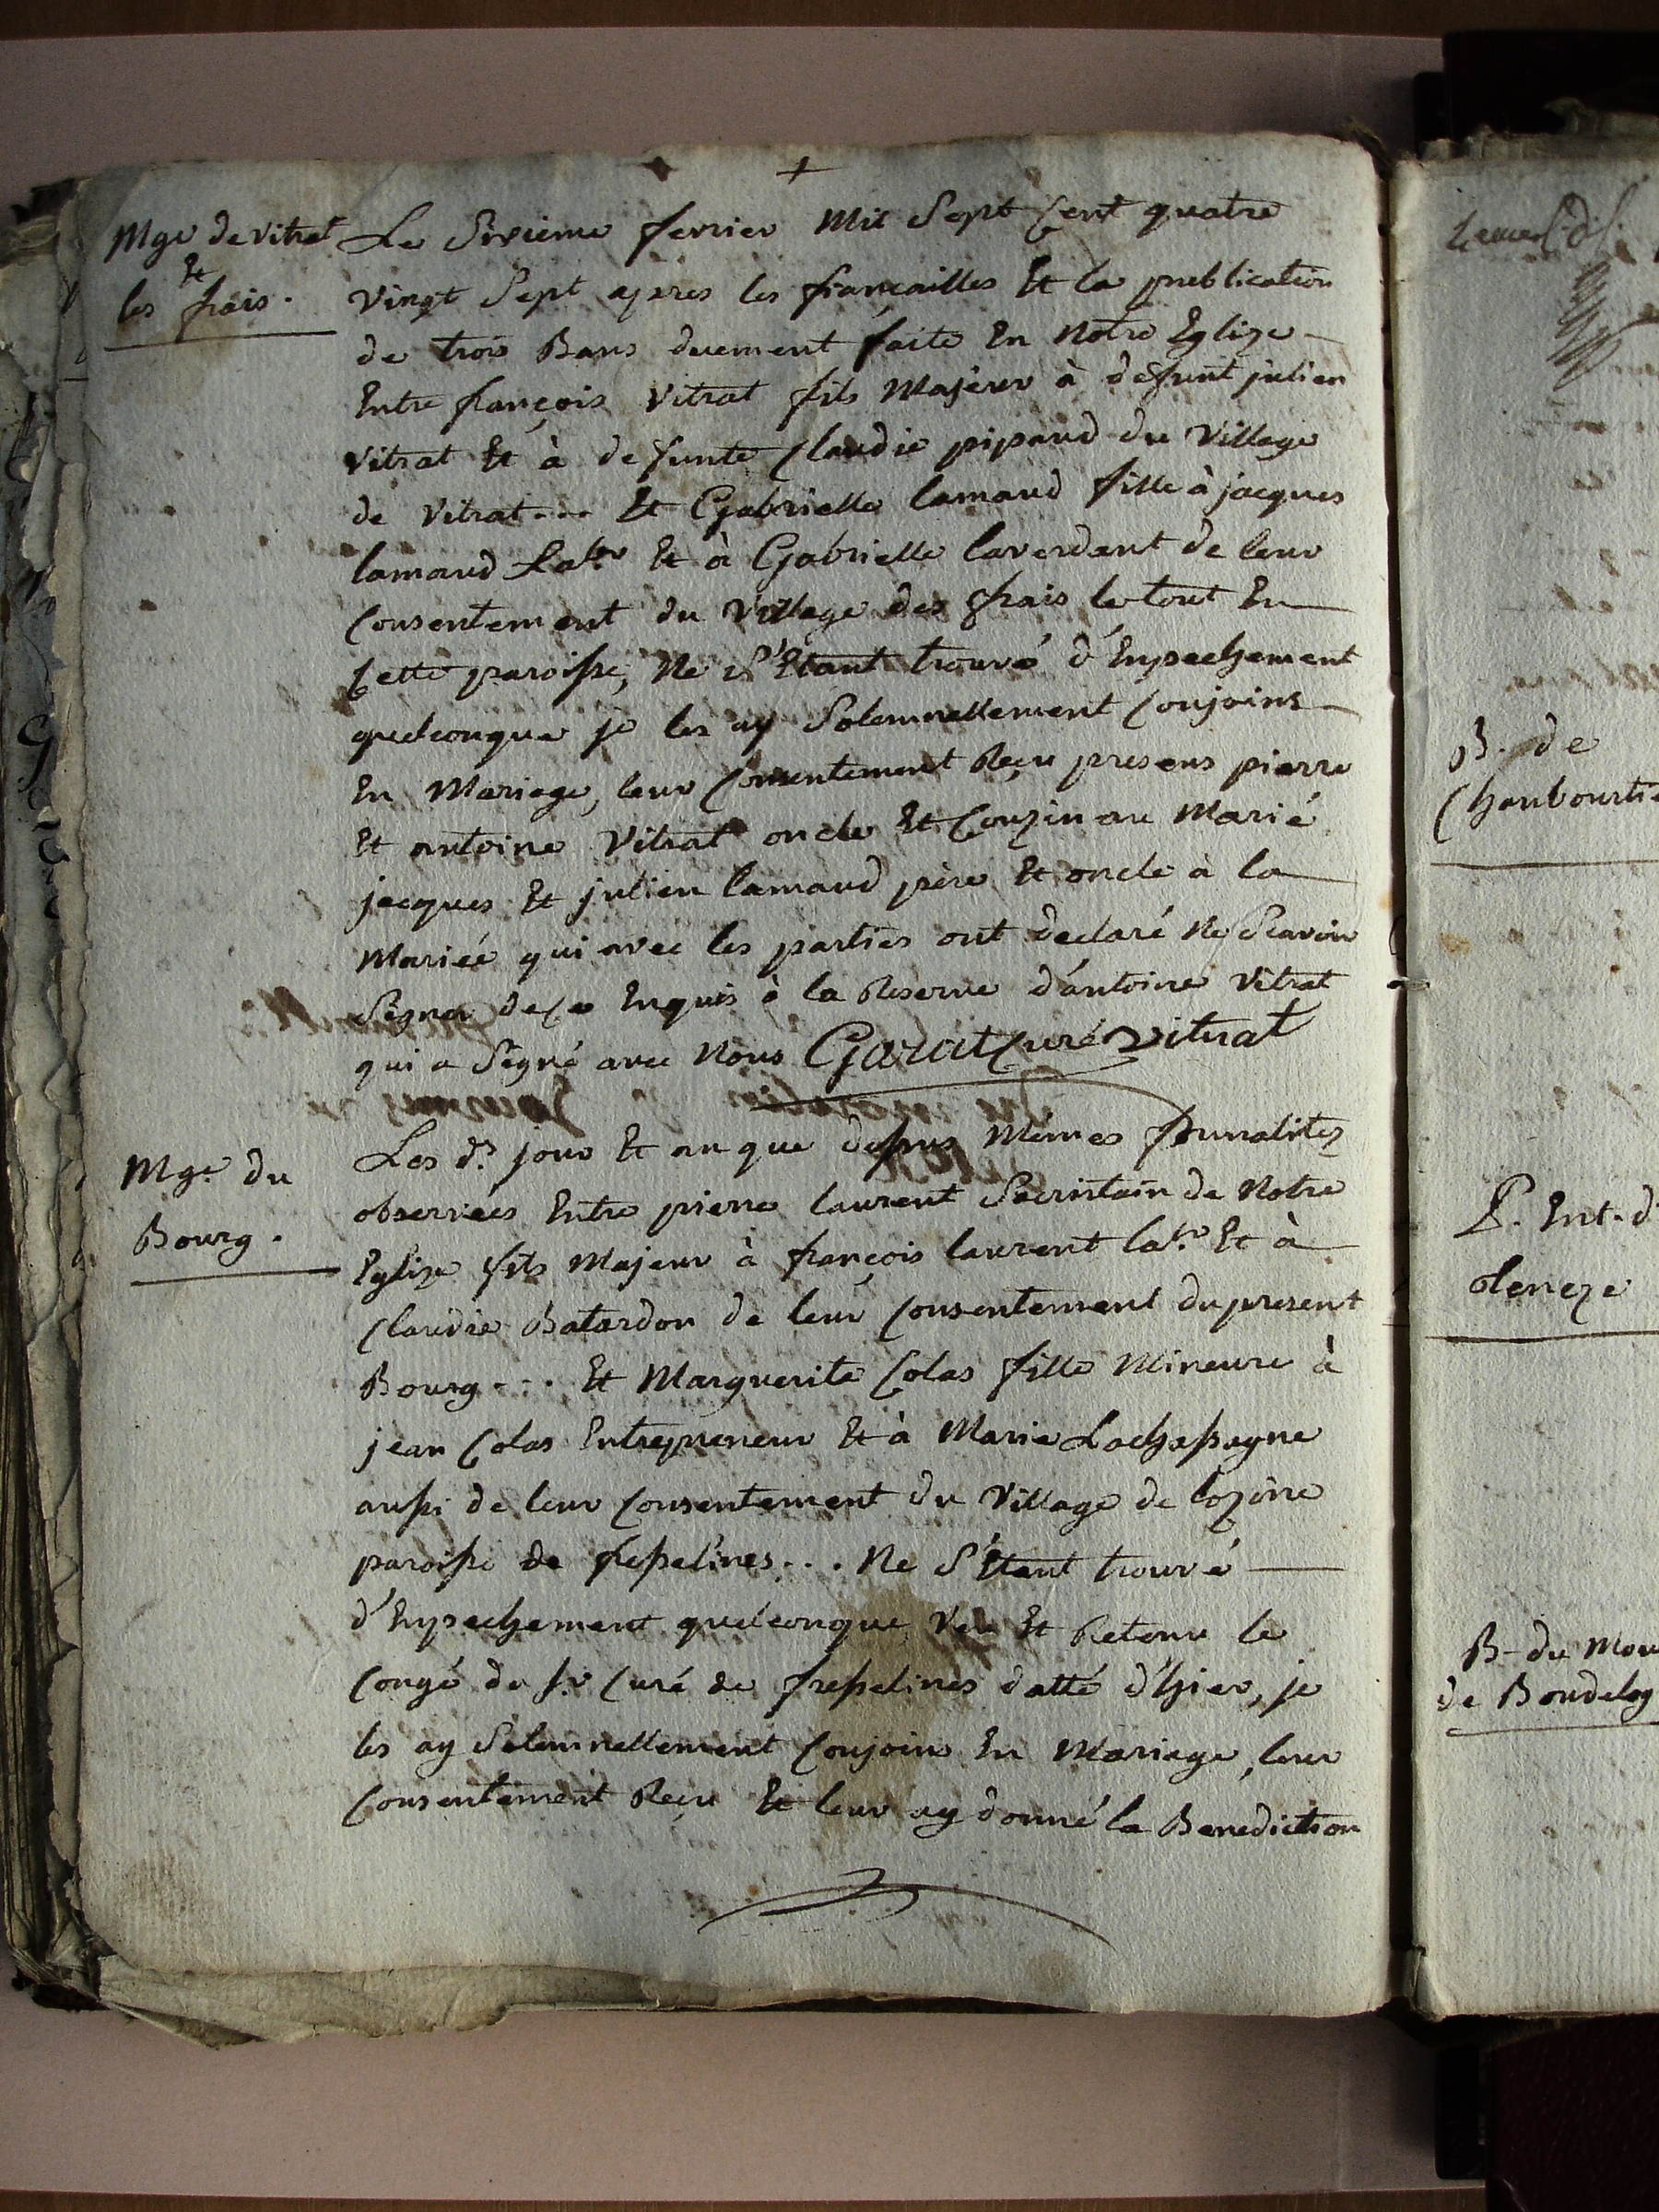 Mge de vitrat
Et
les frais.
Le Sixieme fevrier Mil Sept Cent quatre
vingt Sept apres les fiancailles Et la publication
de trois Bans duement faite En Notre Eglize
Entre françois Vitrat fils Majeur à defunt julien
vitrat Et à defunte Claudie pipaud du Village
de Vitrat... Et Gabrielle lamaud fille à jacques
lamaud Labr Et à Gabrielle laverdant de leur
Consentement du Village des frais le tout En
Cette paroisse, Ne s'Etant trouvé d'Enpechement
quelconque je les ay Solemnellement Conjoins
En Mariage, leur Consentement Reçu presens pierre
Et antoine Vitrat oncle Et Couzin au Marié
jacques Et julien lamaud père Et oncle à la
Mariée qui avec les parties ont declaré Ne Scavoir
Signer de Ce Enquis à la Reserve d'antoine Vitrat
qui a Signé avec Nous Garat Curé Vitrat
Mge du
Bourg.
Les ds. jour Et an que dessus Mêmes formalitez
observées Entre pierre laurent Sacristain de Notre
Eglize fils Majeur à françois laurent labr. Et à
Claudie Batardon de leur Consentement du present
Bourg... Et Marguerite Colas fille Mineure à
jean Colas Entrepreneur Et à Marie Lachassagne
aussi de leur Consentement du Village de lozine
paroisse de fresselines... Ne S'Etant trouvé
d'Enpechement quelconque Vu Et Retenu le
Congé du Sr Curé de fresselines datté d'hier, je
les ay Solemnellement Conjoins En Mariage, leur
Consentement Reçu Et leur ay donné la Benediction
B. de
P. Ent. d
B- du Mou